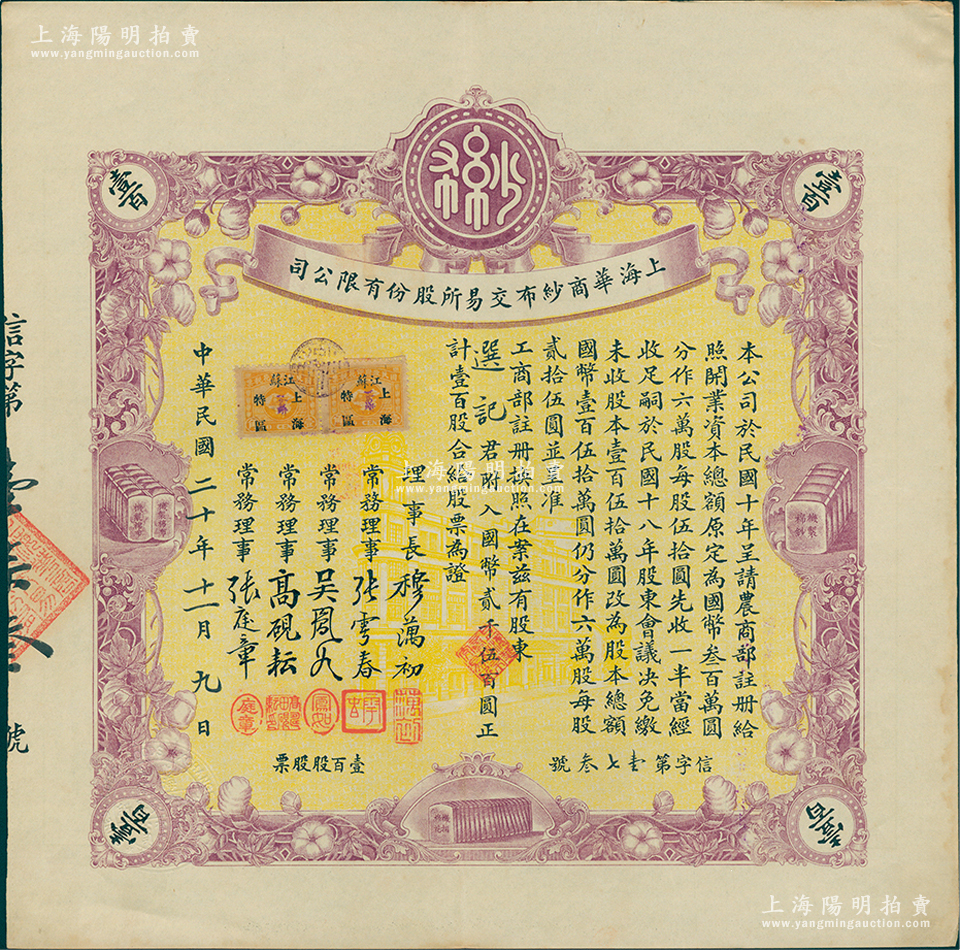 上海陽明拍賣
www.yangmingauction.com
紗布
壹百
壹百
上海華商紗布交易所股份有限公司
本公司於民國十年呈請農商部註册給
照開業資本總額原定為國幣叁百萬圓
分作六萬股每股伍拾圓先收一半當經
收足嗣於民國十八年股東會議决免繳
未收股本壹百伍拾萬圓改為股本總額
國幣壹百伍拾萬圓仍分作六萬股每股
貳拾伍圓並呈准
工商部註册換照在案兹有股東
選記君附入國幣貳千伍百圓正
計壹百股合給股票為證
理事長 穆藕初
常務理事 張霅春
常務理事 吳鳳如
常務理事 高硯耘
常務理事 張庭章
中華民國二十年十一月九日
江蘇
上海
特區
江蘇
上海
特區
信字第壹七叁號
壹百股股票
信字第
號
壹百
壹百
上海陽明拍賣
www.yangmingauction.com